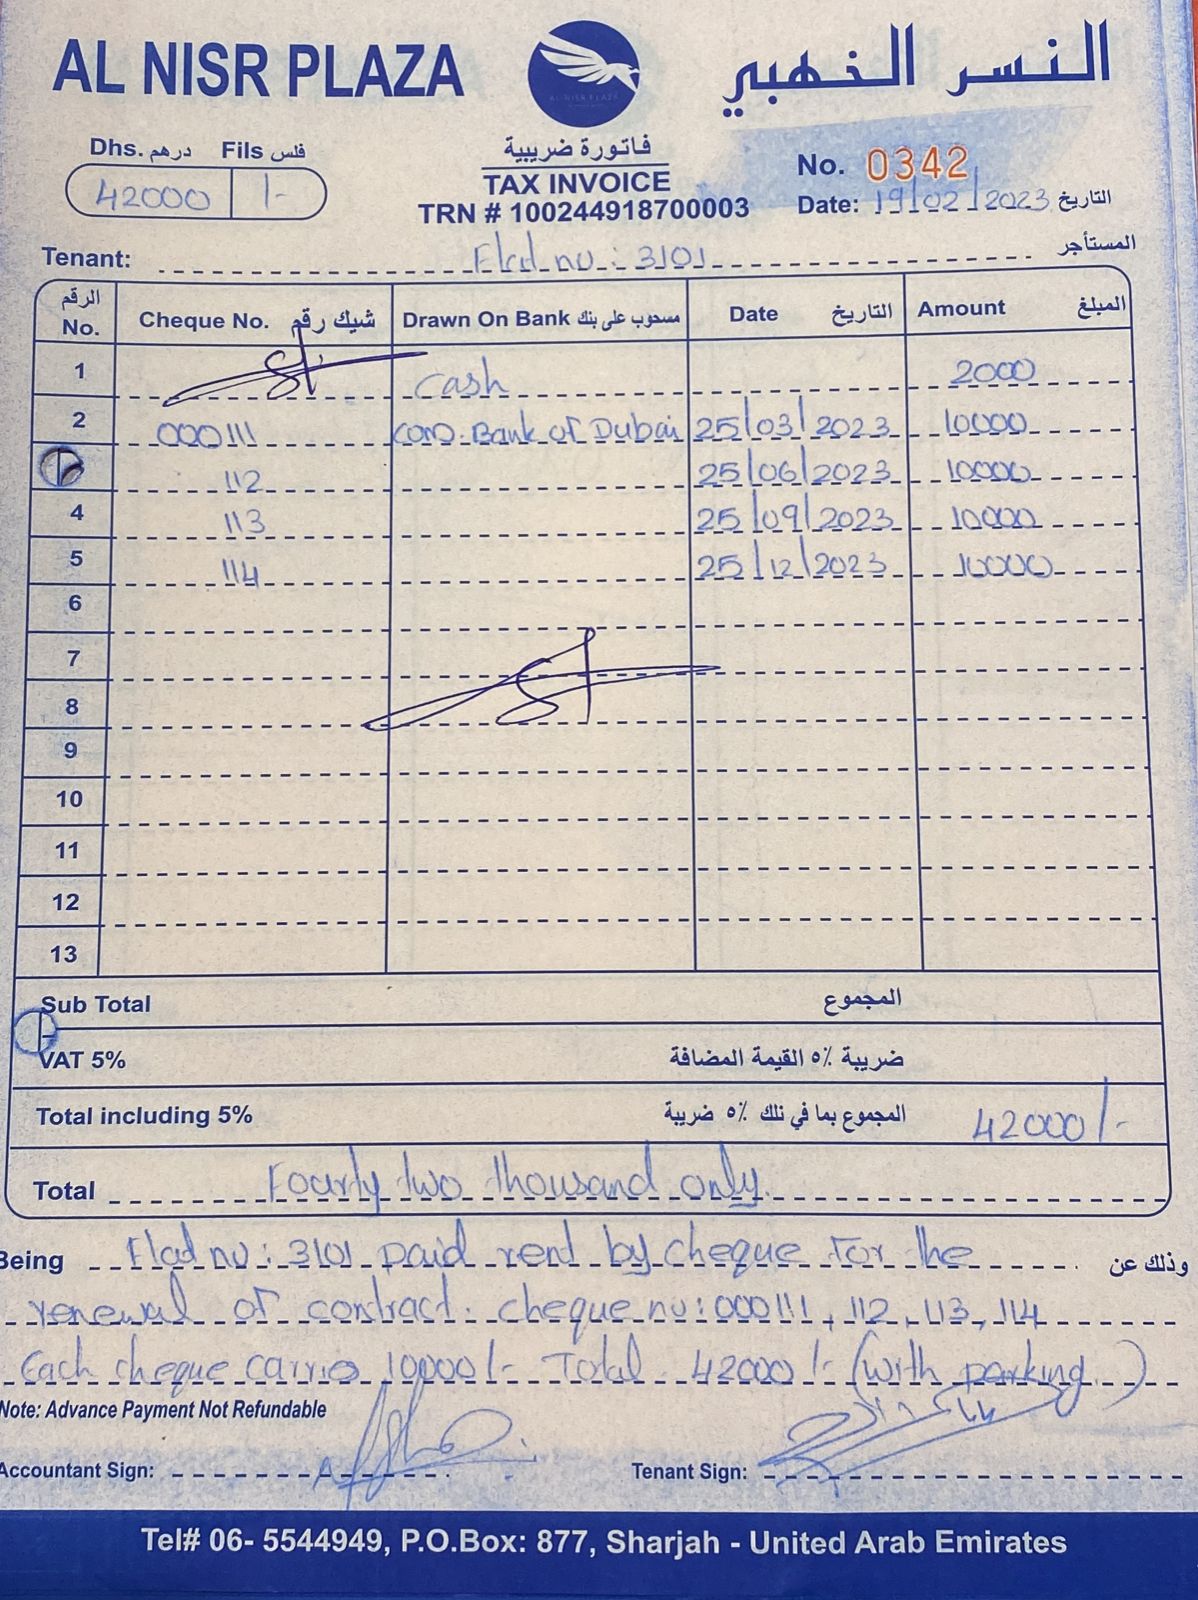 AL NISR PLAZA
AL NISR PLAZA
النسر الذهبي
Dhs. درهم Fils فلس
42000 /-
فاتورة ضريبية
TAX INVOICE
TRN # 100244918700003
No. 0342
Date: 19/02/2023 التاريخ
Tenant: Flad nu: 3101 المستأجر
الرقم No. Cheque No. شيك رقم Drawn On Bank مسحوب على بنك Date التاريخ Amount المبلغ
1 Cash 2000
2 000111 Com. Bank of Dubai 25/03/2023 10000
112 25/06/2023 10000
4 113 25/09/2023 10000
5 114 25/12/2023 10000
6
7
8
9
10
11
12
13
Sub Total المجموع
VAT 5% ضريبة ٥٪ القيمة المضافة
Total including 5% المجموع بما في ذلك ٥٪ ضريبة 42000/-
Total Fourty two thousand only.
Being Flad nu: 3101 paid rend by cheque for the وذلك عن
renewal of contract. cheque nu: 000111, 112, 113, 114
Each cheque carrio 10000/- Total 42000/- (with parking)
Note: Advance Payment Not Refundable
Accountant Sign: Tenant Sign:
Tel# 06- 5544949, P.O.Box: 877, Sharjah - United Arab Emirates